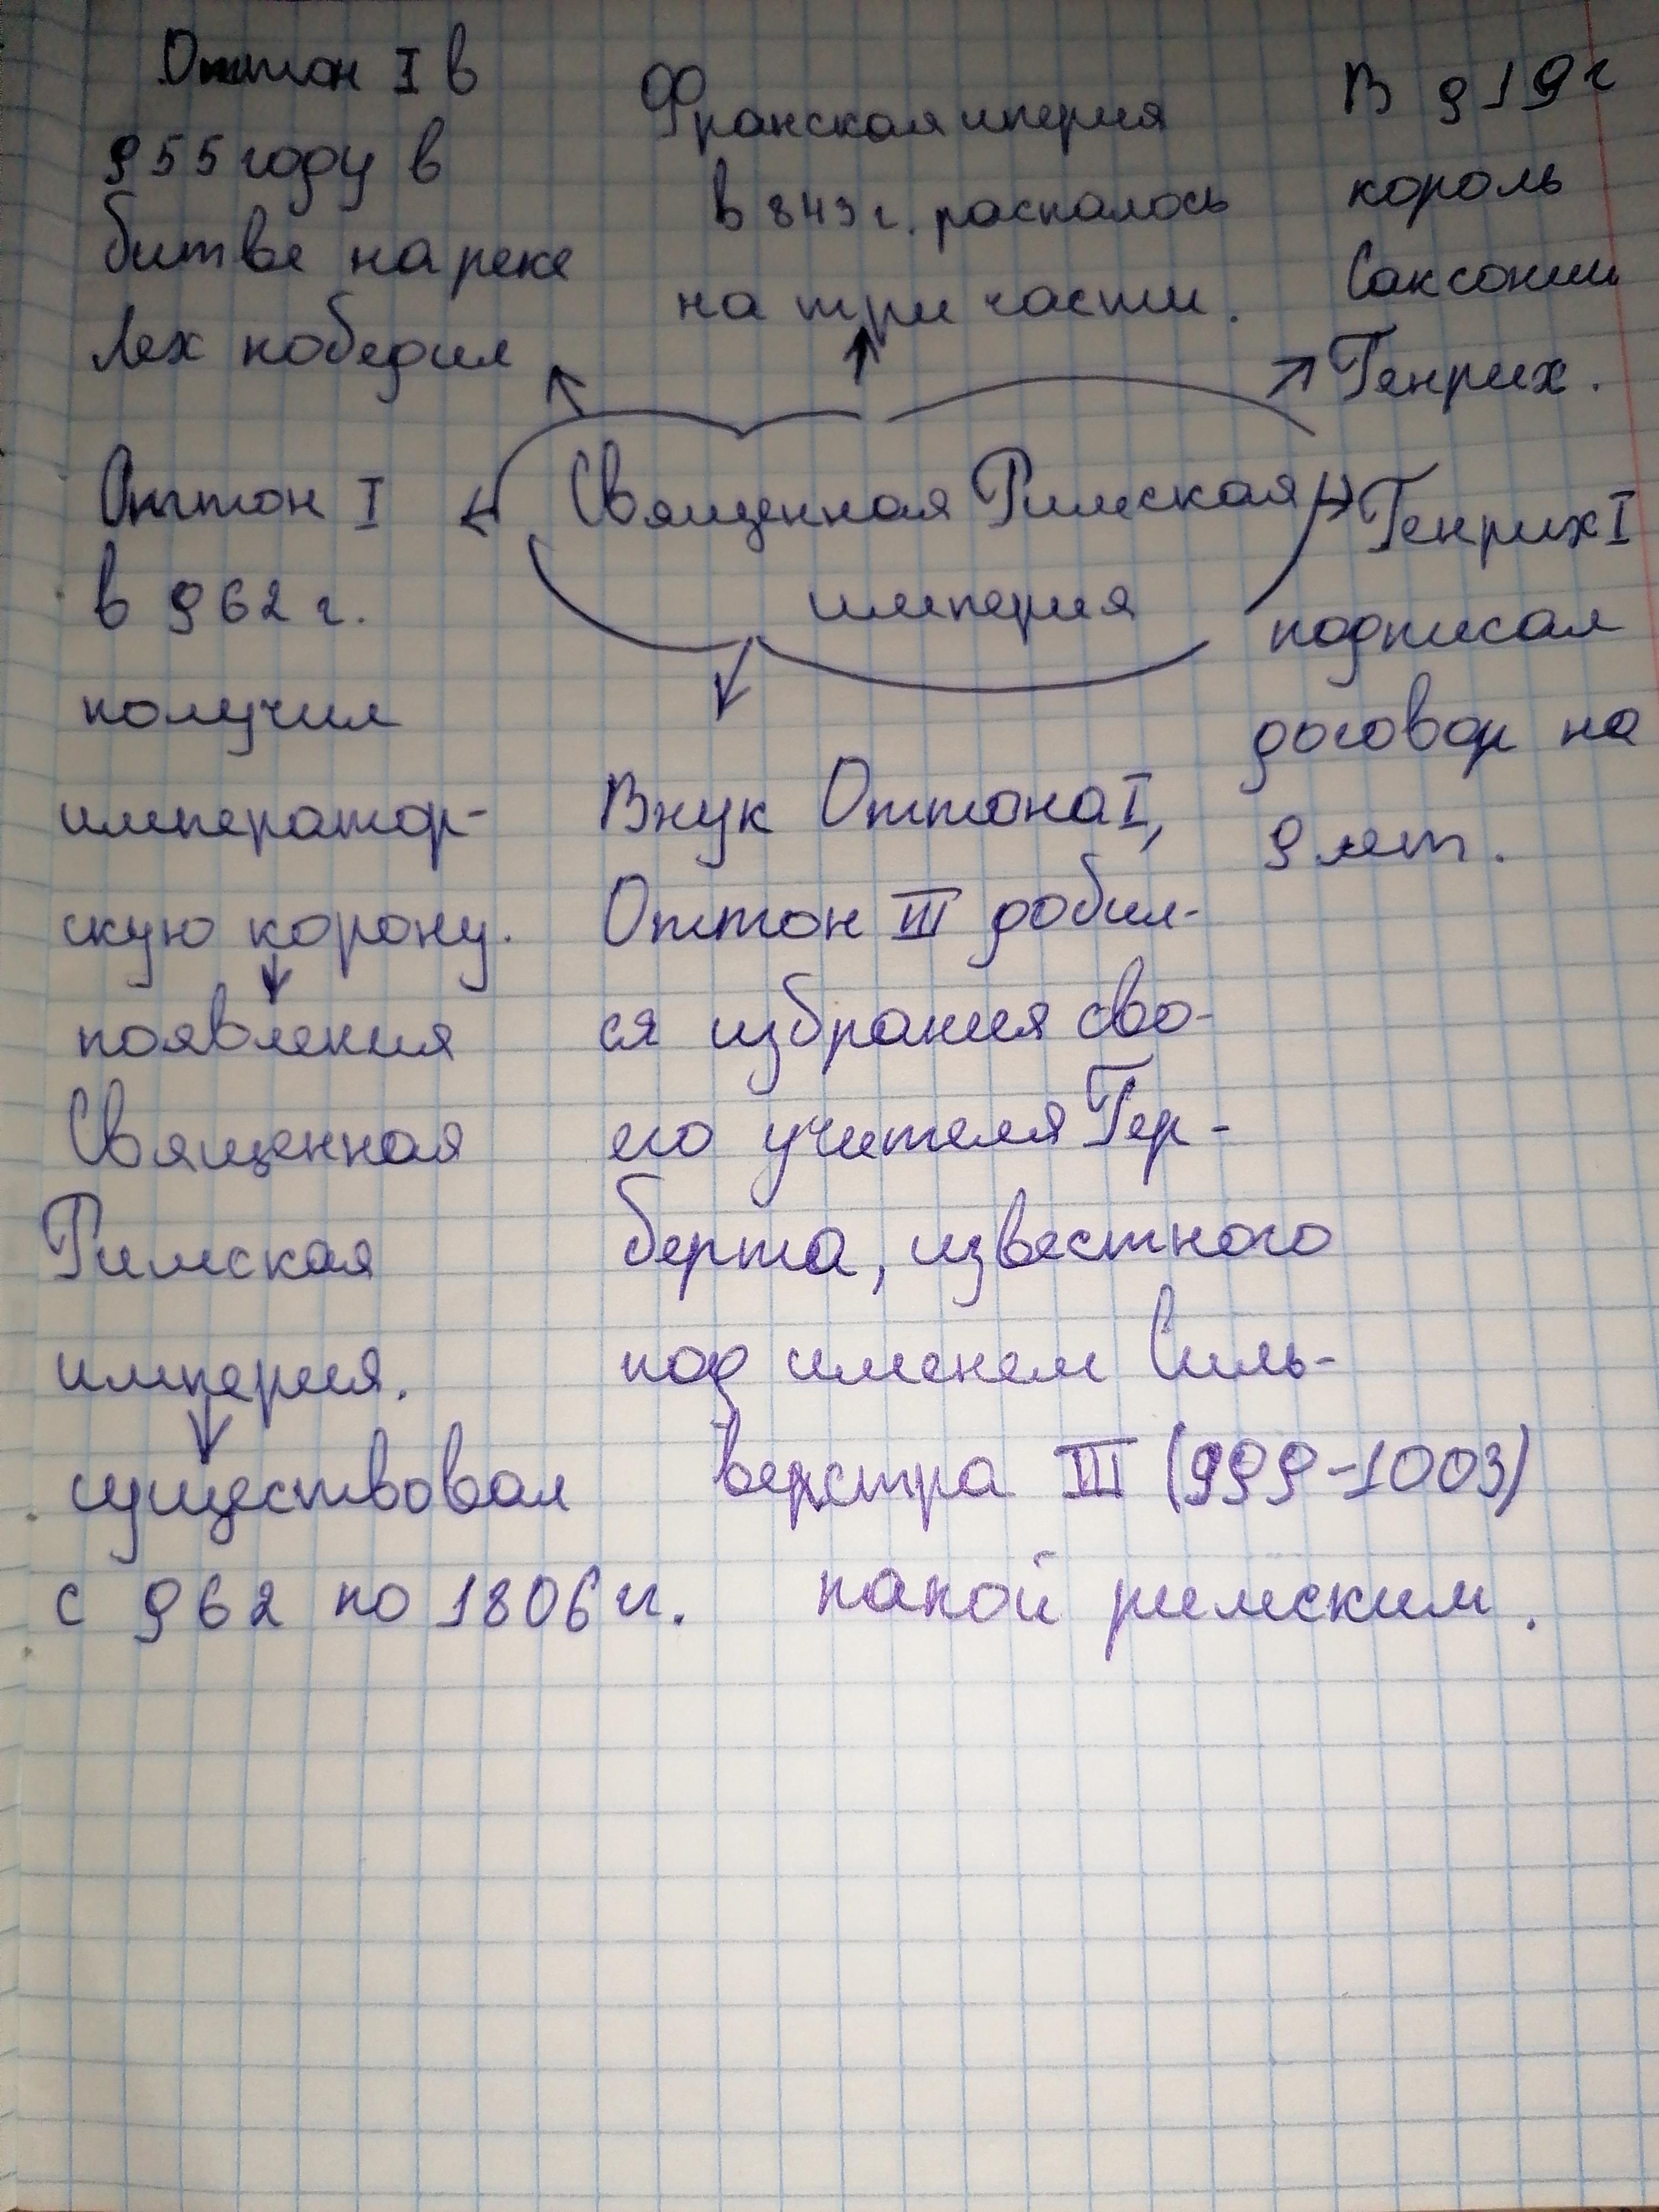 Оттон I в
955 году в
битве на реке
Лех победил
Франская иперия
в 843 г. распалось
на три части.
В 919 г
король
Саксонии
Генрих.
Священная Римская
империя
Оттон I
в 962 г.
получил
император-
скую корону.
появления
Священная
Римская
империя.
существовал
с 962 по 1806 гг.
Внук Оттона I,
Оттон III добил-
ся избрания сво-
его учителя Гер-
берта, известного
под именем Силь-
верстра III (999-1003)
папой римским.
Генрих I
подписал
договор на
9 лет.